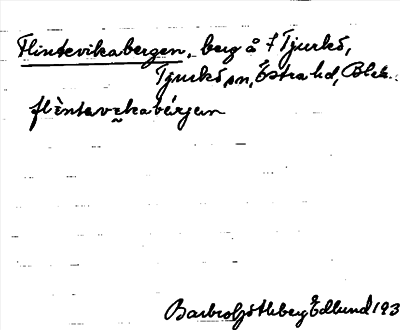 Flintevikabergen, berg å f Tjurkö,
Tjurkö sn, Östra hd, Blek.
flèntavekabǽrjan
Barbro Götlberg Edlund 193